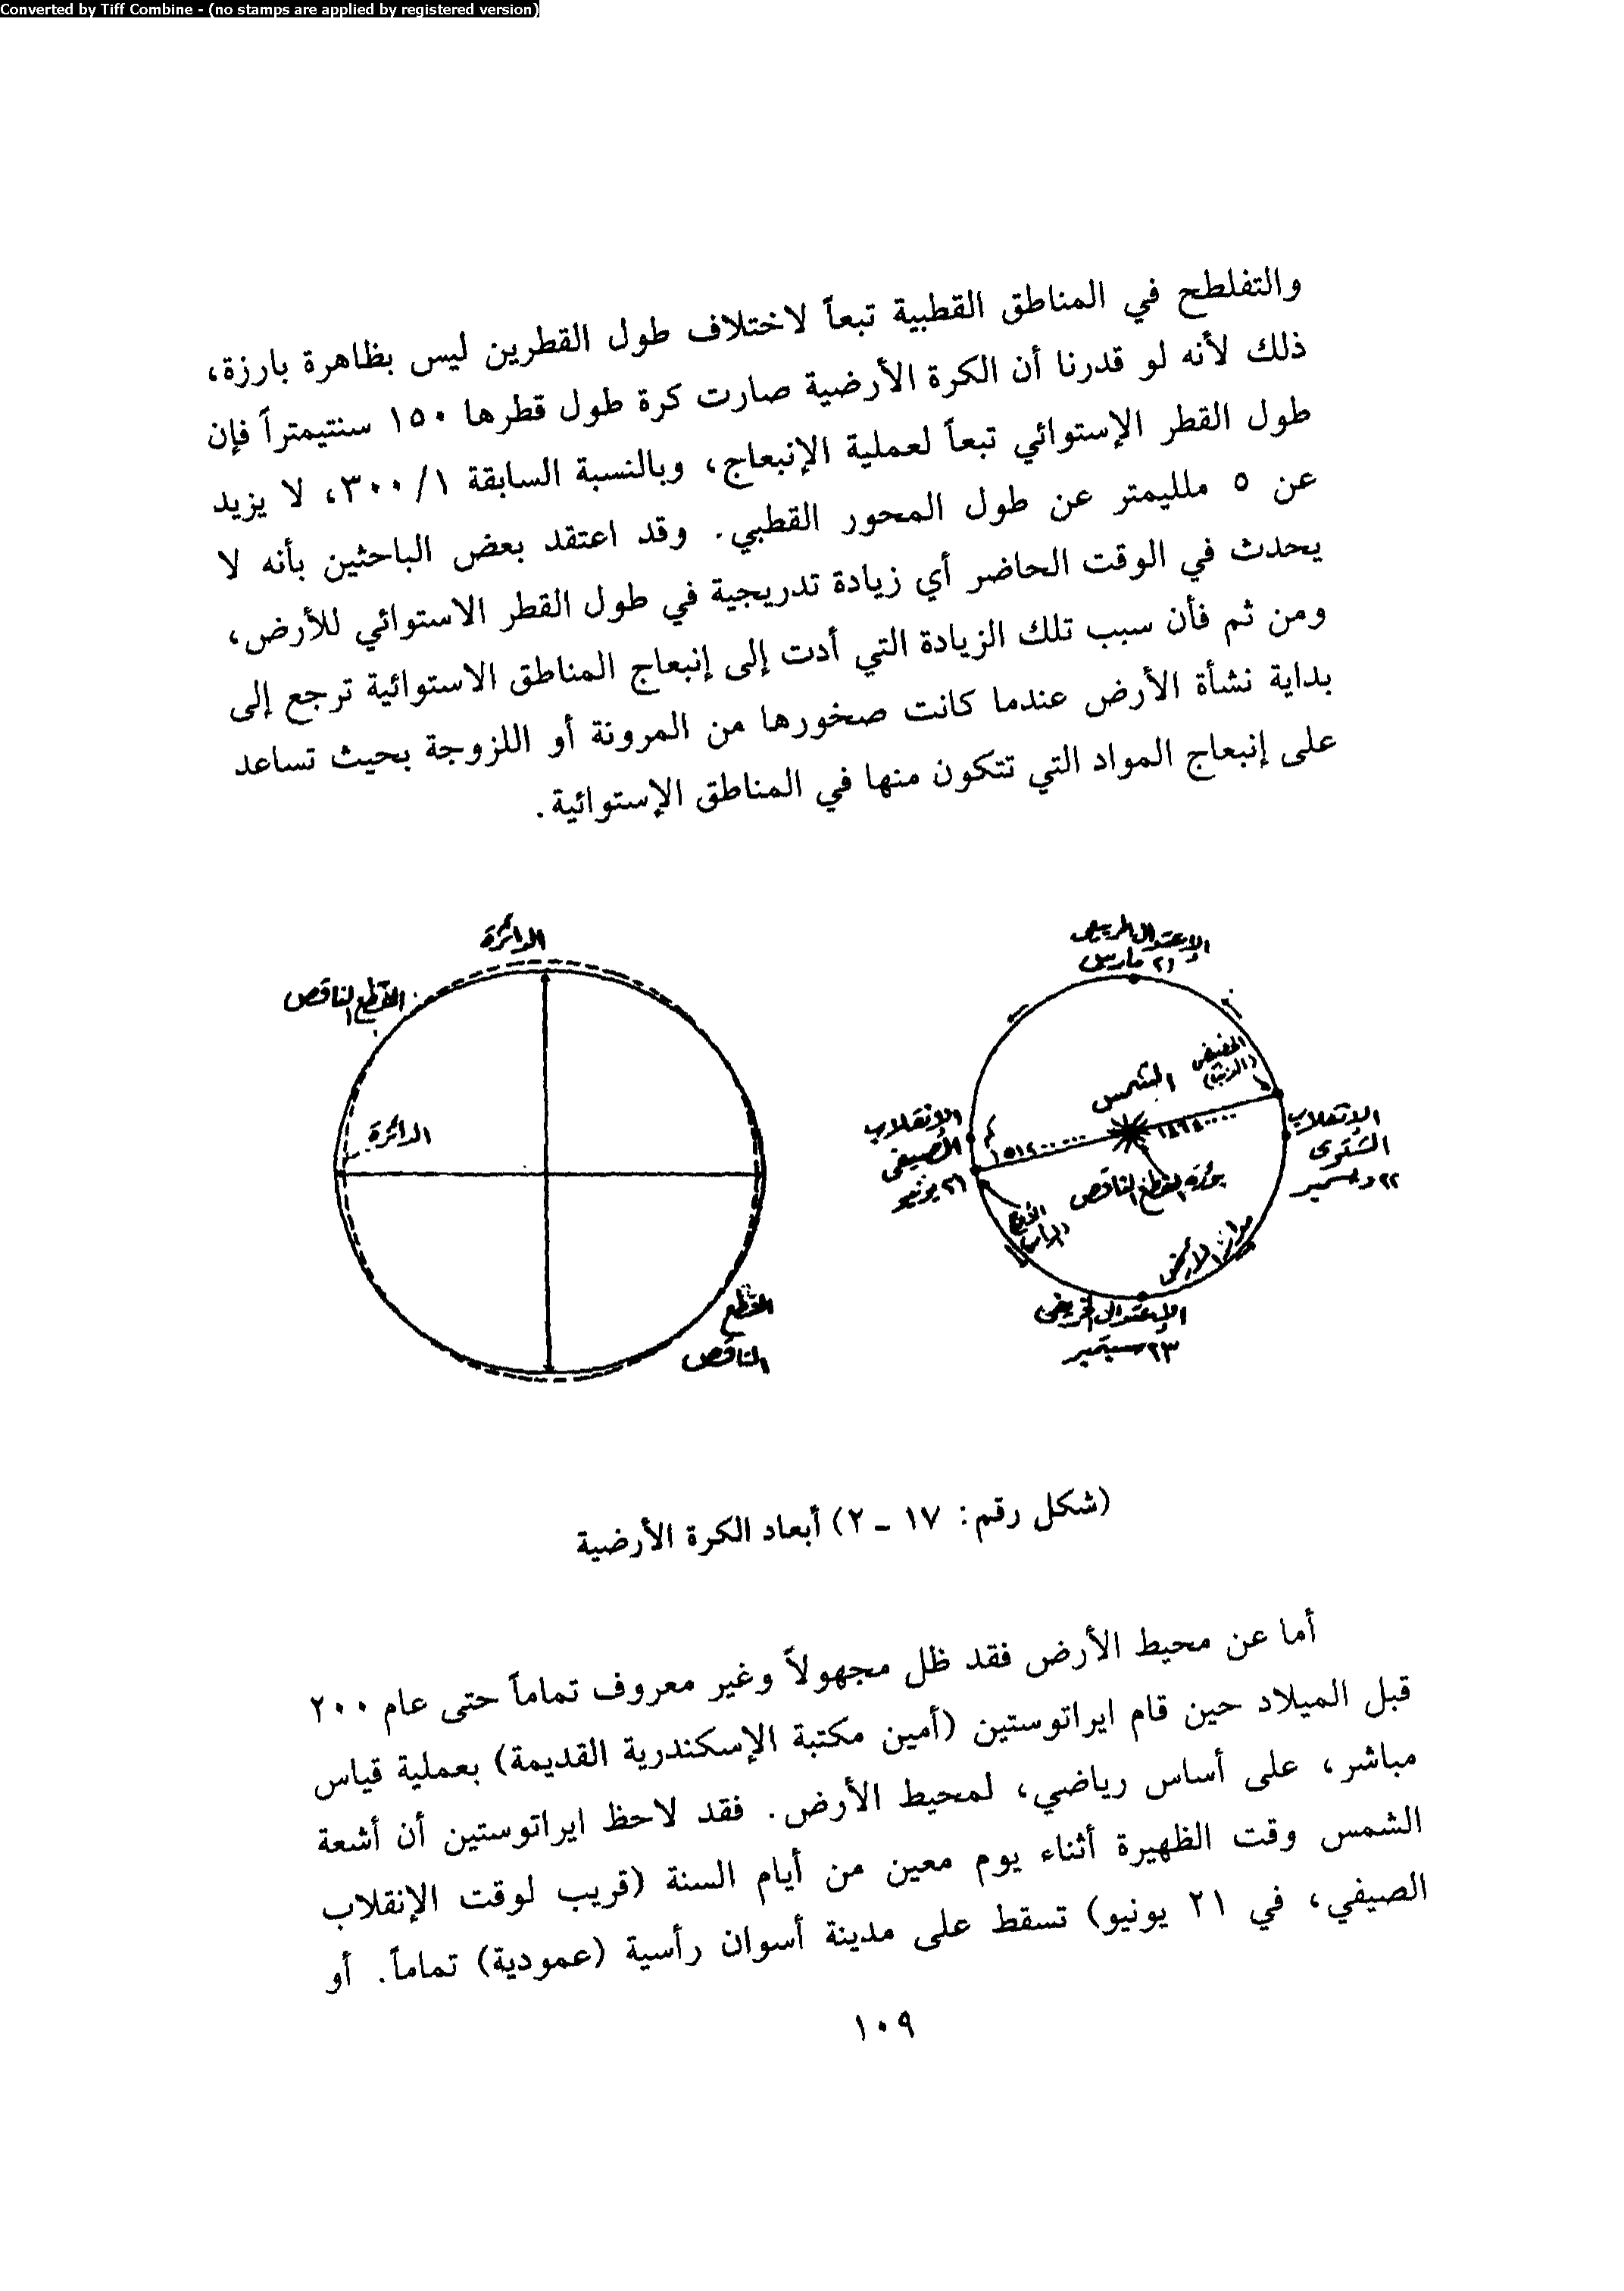 Converted by Tiff Combine - (no stamps are applied by registered version)
والتفلطح في المناطق القطبية تبعاً لاختلاف طول القطرين ليس بظاهرة بارزة،
ذلك لأنه لو قدرنا أن الكرة الأرضية صارت كرة طول قطرها ١٥٠ سنتيمتراً فإن
طول القطر الإستوائي تبعاً لعملية الإنبعاج، وبالنسبة السابقة ٣٠٠/١، لا يزيد
عن ٥ ملليمتر عن طول المحور القطبي. وقد اعتقد بعض الباحثين بأنه لا
يحدث في الوقت الحاضر أي زيادة تدريجية في طول القطر الاستوائي للأرض،
ومن ثم فأن سبب تلك الزيادة التي أدت إلى إنبعاج المناطق الاستوائية ترجع إلى
بداية نشأة الأرض عندما كانت صخورها من المرونة أو اللزوجة بحيث تساعد
على إنبعاج المواد التي تتكون منها في المناطق الإستوائية.
الإعتدال الربيعى
٢١ مارس
الحضيض
الشمس
الإنقلاب
الشتوى
٢٢ ديسمبر
الإنقلاب
الصيفى
٢١ يونيو
كم
بؤرة القطع الناقص
الأوج
الإعتدال الخريفى
٢٣ سبتمبر
الدائرة
القطع الناقص
الدائرة
القطع
الناقص
(شكل رقم: ١٧ - ٢) أبعاد الكرة الأرضية
أما عن محيط الأرض فقد ظل مجهولاً وغير معروف تماماً حتى عام ٢٠٠
قبل الميلاد حين قام ايراتوستين (أمين مكتبة الإسكندرية القديمة) بعملية قياس
مباشر، على أساس رياضي، لمحيط الأرض. فقد لاحظ ايراتوستين أن أشعة
الشمس وقت الظهيرة أثناء يوم معين من أيام السنة (قريب لوقت الإنقلاب
الصيفي، في ٢١ يونيو) تسقط على مدينة أسوان رأسية (عمودية) تماماً. أو
١٠٩